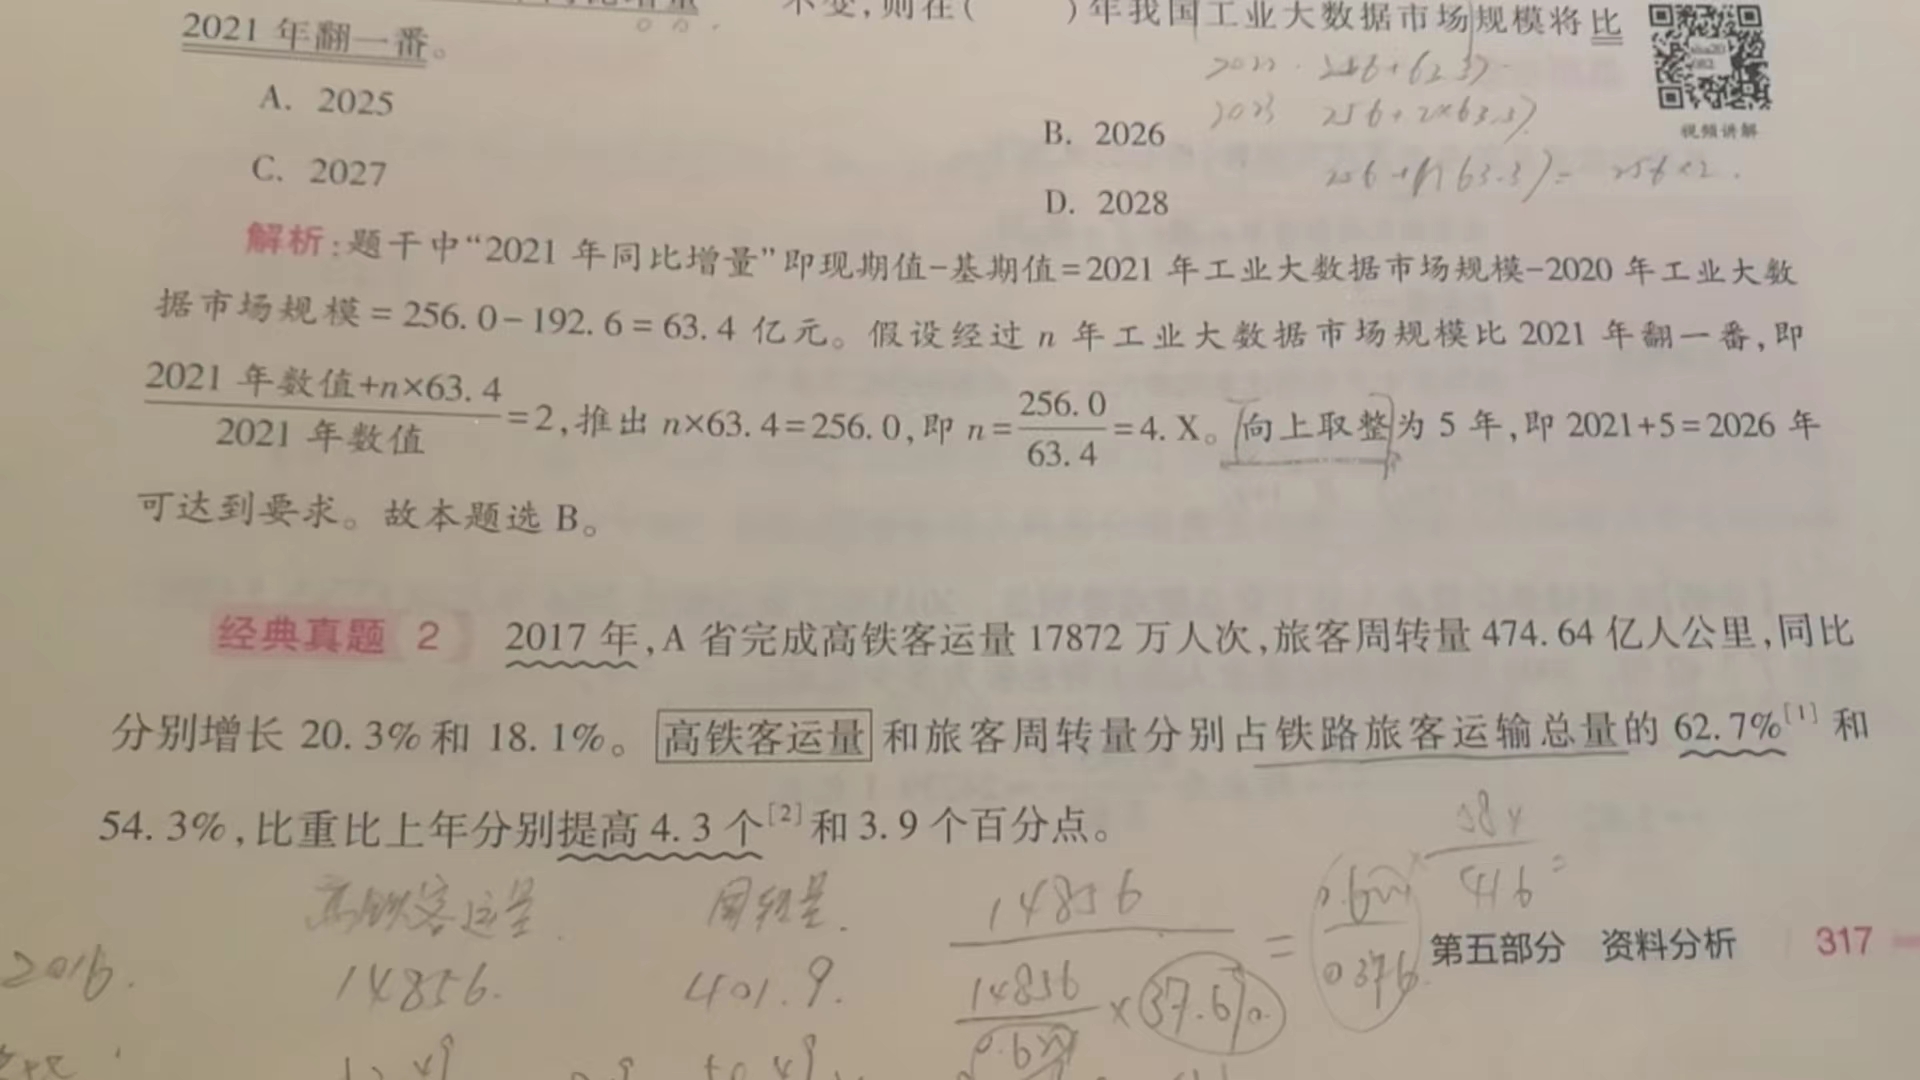 不变,则在(　　)年我国工业大数据市场规模将比
2021年翻一番。
视频讲解
A. 2025
B. 2026
C. 2027
D. 2028
2023 256+2×63.3)
解析:题干中“2021年同比增量”即现期值-基期值=2021年工业大数据市场规模-2020年工业大数
据市场规模=256.0-192.6=63.4亿元。假设经过n年工业大数据市场规模比2021年翻一番,即
2021年数值+n×63.4/2021年数值=2,推出n×63.4=256.0,即n=256.0/63.4=4.X。向上取整为5年,即2021+5=2026年
可达到要求。故本题选B。
经典真题 2 2017年,A省完成高铁客运量17872万人次,旅客周转量474.64亿人公里,同比
分别增长20.3%和18.1%。高铁客运量和旅客周转量分别占铁路旅客运输总量的62.7%[1]和
54.3%,比重比上年分别提高4.3个[2]和3.9个百分点。
高铁客运量 周转量
14856
2016. 14856. 401.9.
14856 × 37.6%
= 0.376
416
第五部分 资料分析 317